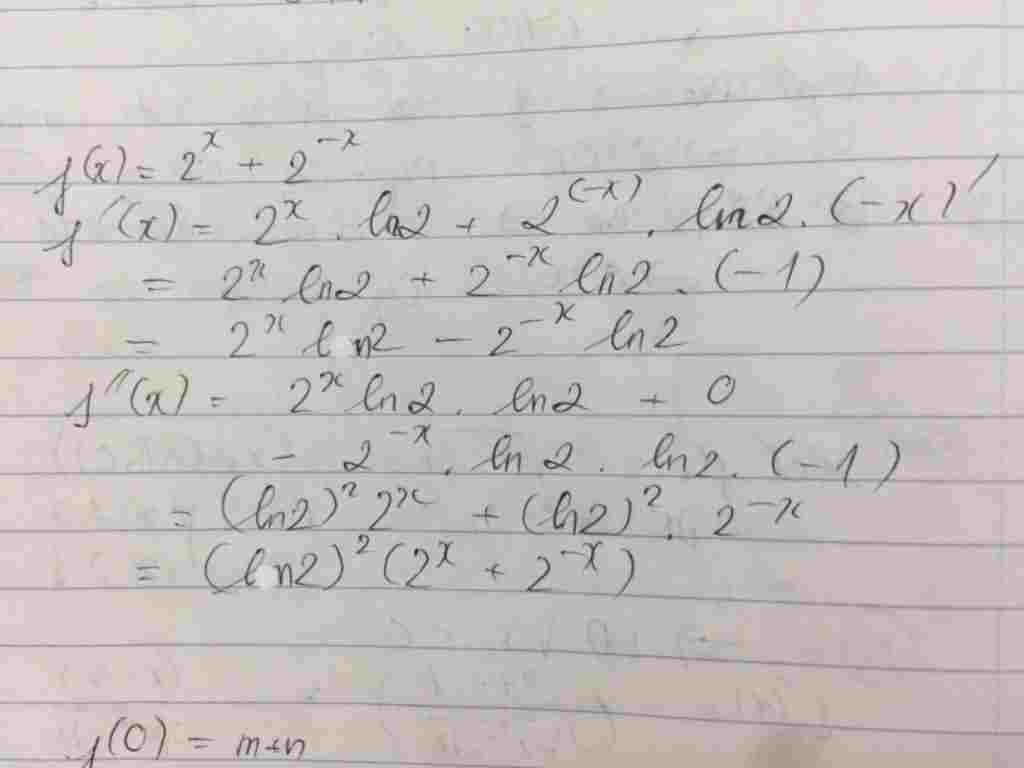 f(x) = 2^x + 2^{-x}
f'(x) = 2^x . ln2 + 2^{(-x)} . ln2. (-x)'
= 2^x ln2 + 2^{-x} ln2 . (-1)
= 2^x ln2 - 2^{-x} ln2
f''(x) = 2^x ln2 . ln2 + 0
- 2^{-x} . ln2 . ln2 . (-1)
= (ln2)^2 2^x + (ln2)^2 . 2^{-x}
= (ln2)^2 (2^x + 2^{-x})
f(0) = m+n